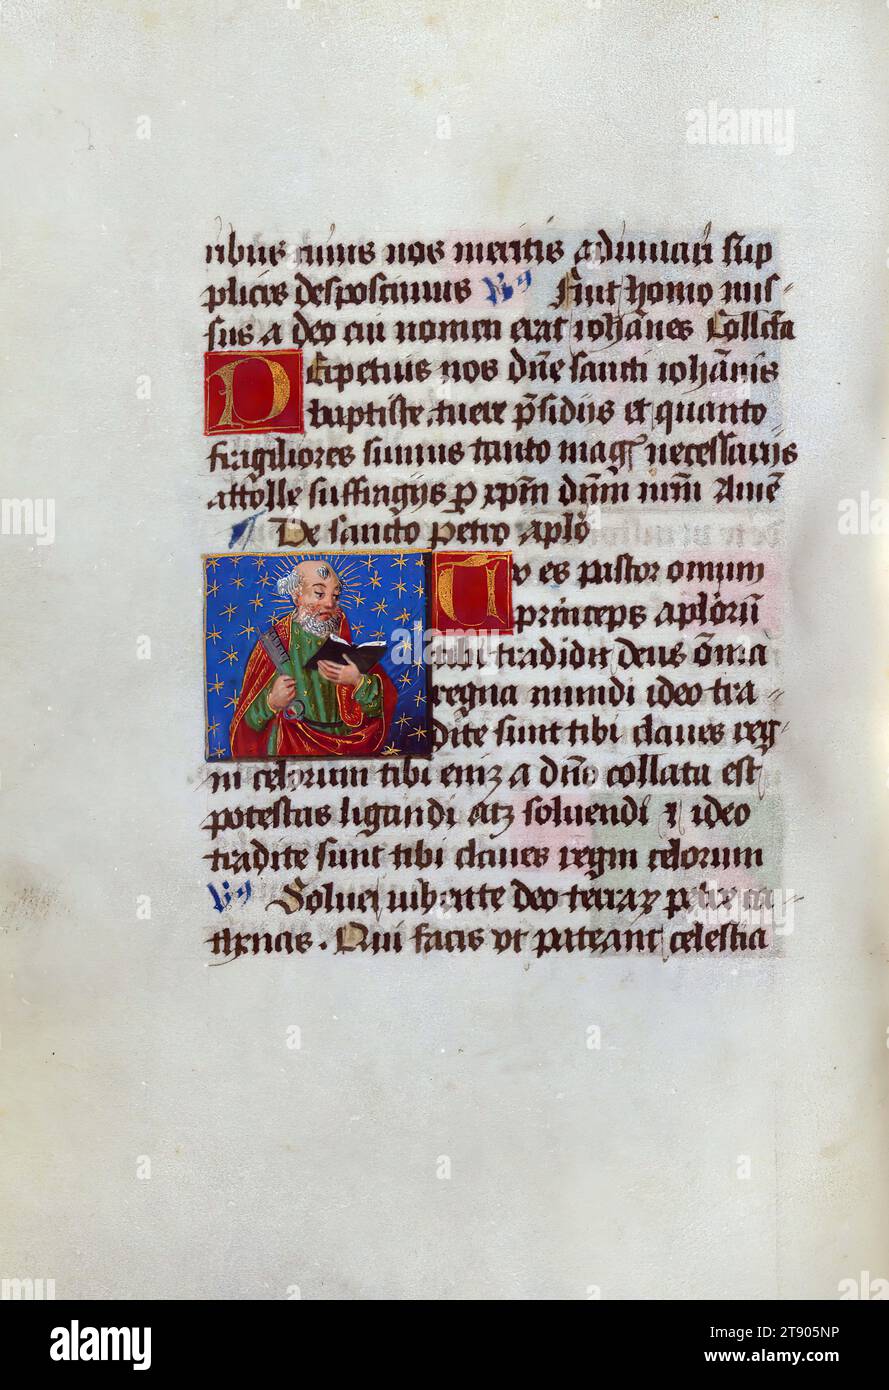 ribus cuius nos meritis adiuuari sup
plicis desposcimus V9 Fuit homo mis-
sus a deo cui nomen erat ioh̄anes Collc̄ta
PErpetuis nos dn̄e sancti ioh̄anis
baptiste tuere p̄sidijs et quanto
fragiliores sumus tanto mag necessarijs
attolle suffragijs p xp̄m dnm̄ nr̄m Amē
De sancto petro aplō
TV es pastor omium
princeps aplorū
tibi tradidit deus ōnia
regna mundi ideo tra-
dite sunt tibi claues reg
ni celorum tibi eniz a dn̄o collata est
potestas ligandi atz soluendi ⁊ ideo
tradite sunt tibi claues regni celorum
V9 Soluei iubente deo terraꝝ petre ca
thenas. Qui facis vt pateant celestia
alamy
Image ID: 2T905NP
www.alamy.com